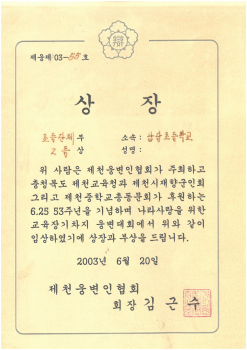 제웅제03-55호
상 장
초등단체부
소속: 삼광초등학교
2등상
성명:
위 사람은 제천웅변인협회가 주최하고
충청북도 제천교육청과 제천시재향군인회
그리고 제천중학교총동문회가 후원하는
6.25 53주년을 기념하며 나라사랑을 위한
교육장기차지 웅변대회에서 위와 같이
입상하였기에 상장과 부상을 드립니다.
2003년 6월 20일
제천웅변인협회
회장 김근수